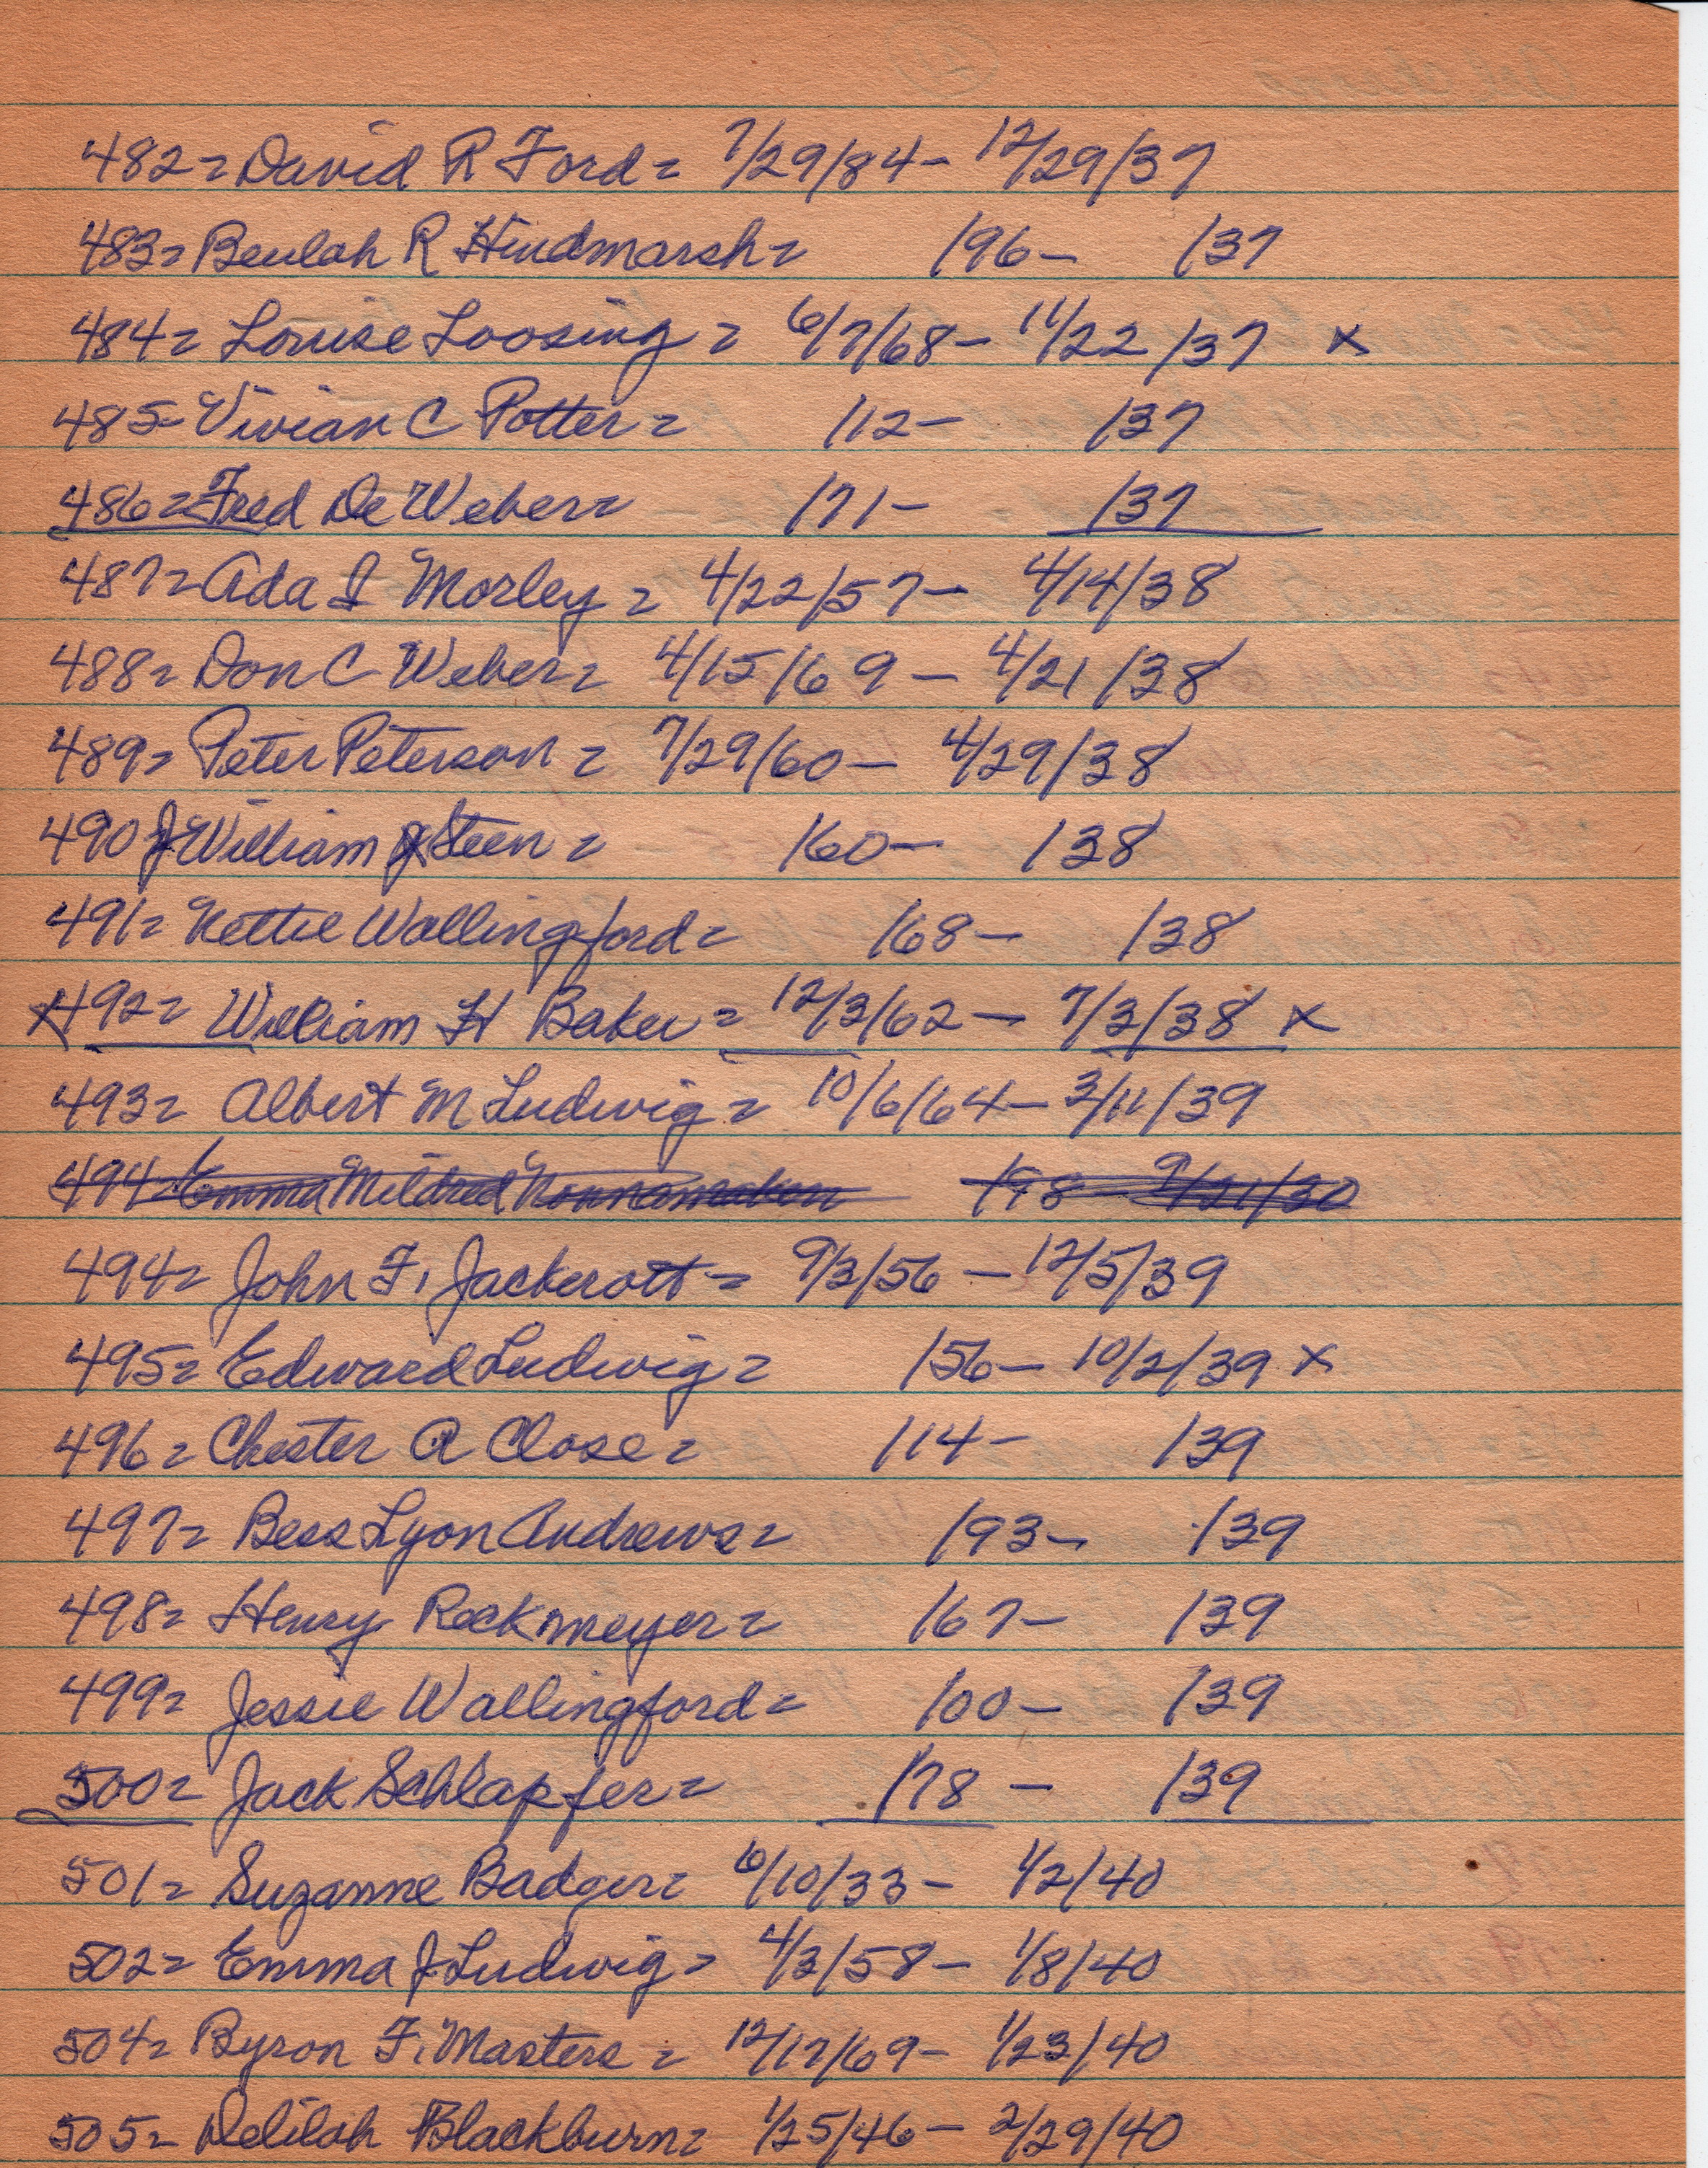 482= David R Ford= 7/29/84- 12/29/37
483= Beulah R Hindmarsh= /96- /37
484= Louise Loosing = 6/7/68- 11/22/37 x
485= Vivian C Potter= /12- /37
486= Fred De Weber= /71- /37
487= Ada I Morley = 4/22/57- 4/14/38
488= Don C Weber= 4/15/69 - 4/21/38
489= Peter Peterson = 7/29/60- 4/29/38
490 J William Steen = /60- /38
491= Nettie Wallingford= /68- /38
x492= William H Baker = 12/3/62 - 7/3/38 x
493= Albert M Ludwig = 10/6/64- 3/11/39
494= Emma Mildred Nonnamaker /98 - 9/21/30
494= John F. Jackerott= 9/3/56 - 12/5/39
495= Edward Ludwig= /56- 10/2/39 x
496= Chester A Close= /14- /39
497= Bess Lyon Andrews= /93- /39
498= Henry Rockmeyer= /67- /39
499= Jessie Wallingford= /00- /39
500= Jack Schlapfer= /78 - /39
501= Suzanne Badger= 6/10/33- 1/2/40
502= Emma J Ludwig= 4/3/58- 1/8/40
504= Byron F. Masters = 12/17/69- 1/23/40
505= Delilah Blackburn= 1/25/46- 2/29/40